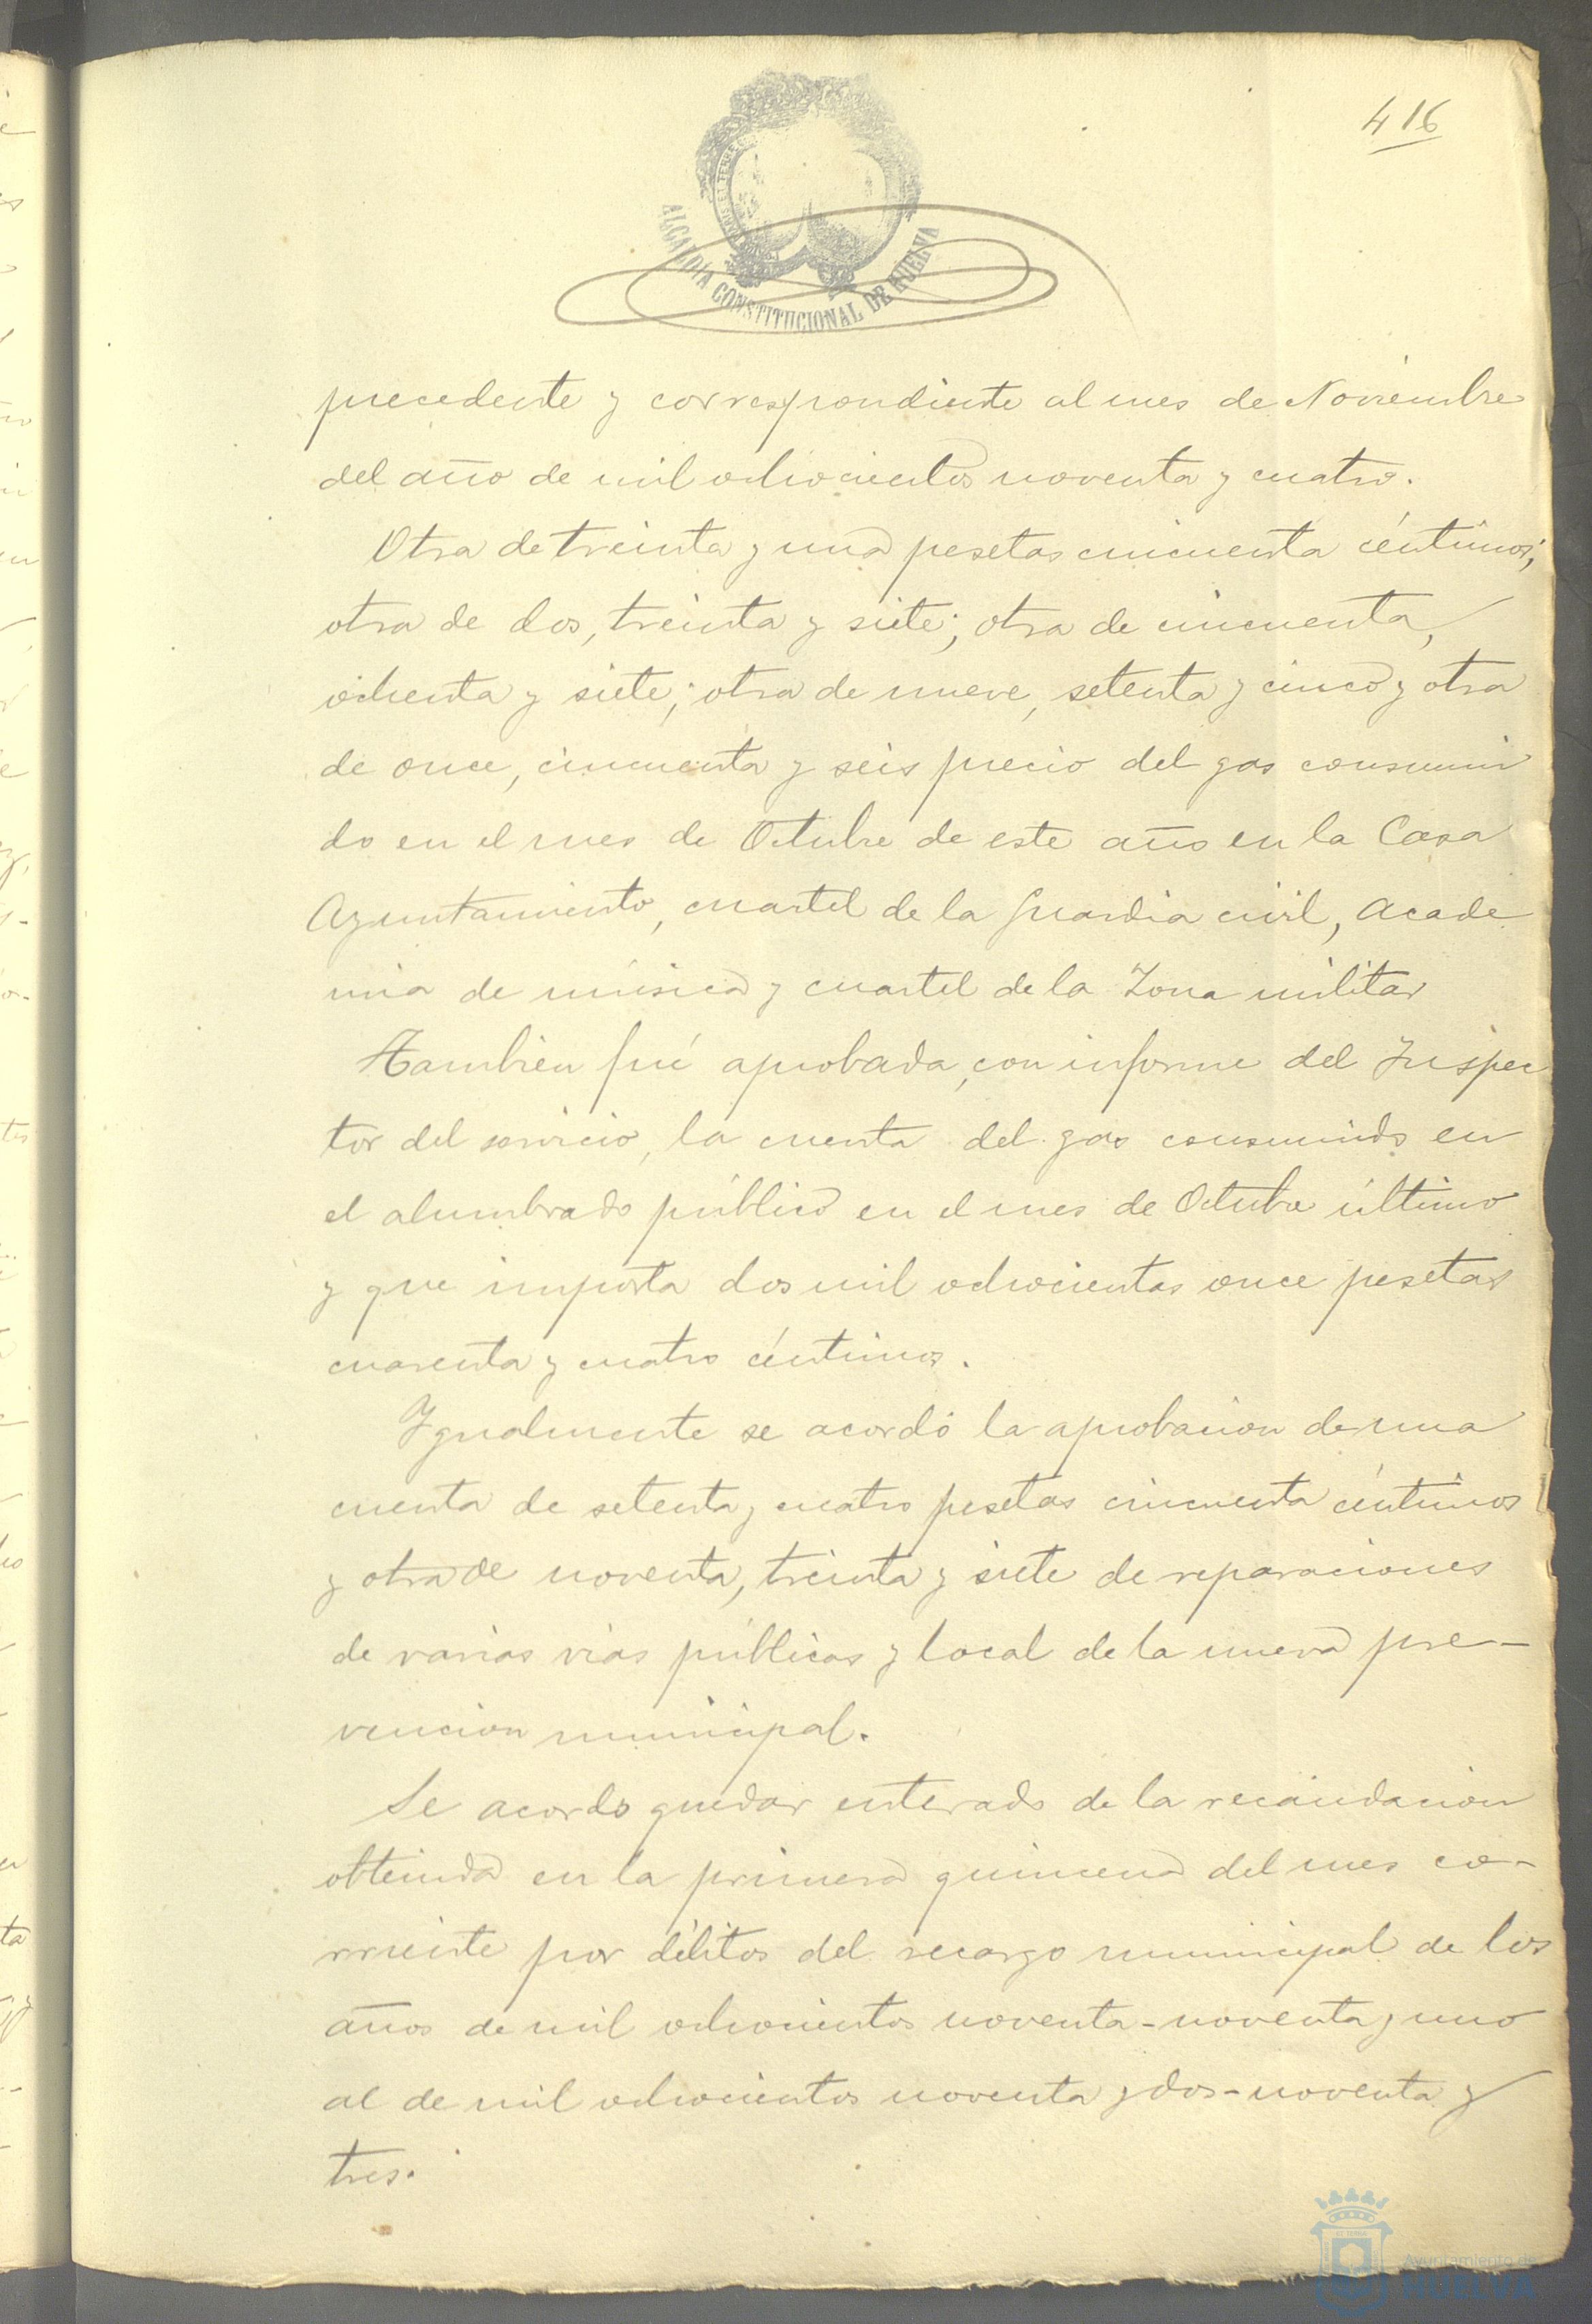 416
ALCALDÍA CONSTITUCIONAL DE HUELVA
precedente y correspondiente al mes de Noviembre
del año de mil ochocientos noventa y cuatro.
Otra de treinta y una pesetas cincuenta céntimos;
otra de dos, treinta y siete; otra de cincuenta,
ochenta y siete; otra de nueve, setenta y cinco y otra
de once, cincuenta y seis precio del gas consumi
do en el mes de Octubre de este año en la Casa
Ayuntamiento, cuartel de la Guardia civil, Acade
mia de música y cuartel de la Zona militar
Tambien fué aprobada, con informe del Inspec
tor del servicio, la cuenta del gas consumido en
el alumbrado público en el mes de Octubre último
y que importa dos mil ochocientas once pesetas
cuarenta y cuatro céntimos.
Igualmente se acordó la aprobacion de una
cuenta de setenta y cuatro pesetas cincuenta céntimos
y otra de noventa, treinta y siete de reparaciones
de varias vias públicas y local de la nueva pre-
vencion municipal.
Se acordó quedar enterado de la recaudacion
obtenida en la primera quincena del mes co-
rriente por débitos del recargo municipal de los
años de mil ochocientos noventa-noventa y uno
al de mil ochocientos noventa y dos-noventa y
tres.
Ayuntamiento de
HUELVA